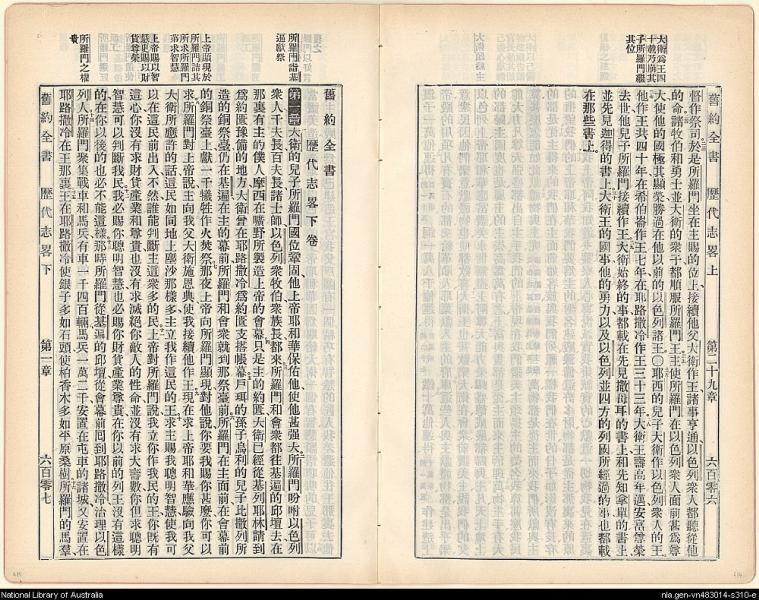 大衛爲王四
十載乃崩其
子所羅門繼
其位
舊約全書 歷代志畧 上 第二十九章 六百零六
督作祭司於是所羅門坐在主賜的位上接續他父大衛作王諸事亨通以色列衆人都聽從他
的命諸牧伯和勇士並大衛的衆子都順服所羅門王主使所羅門在以色列衆人面前甚爲尊
大使他的國極其顯榮勝過在他以前的以色列諸王○耶西的兒子大衛作以色列衆人的王
他作王共四十年在希伯崙作王七年在耶路撒冷作王三十三年大衛王壽高年邁安富尊榮
去世他兒子所羅門接續作王大衛始終的事都載在先見撒母耳的書上和先知拿單的書上
並先見迦得的書上大衛王的國事他的勇力以及以色列並四方的列國所經過的事也都載
在那些書上
所羅門詣基
遍獻祭
上帝顯現於
所羅門詰其
所求所羅門
第求智慧
上帝賜以智
慧更賜以財
貨尊榮
所羅門之權
貴
舊約全書
歷代志畧下卷
第一章大衛的兒子所羅門國位鞏固他上帝耶和華保佑他使他甚强大所羅門吩咐以色列
衆人千夫長百夫長諸士師以色列衆牧伯衆族長都來所羅門和會衆都往基遍的邱壇去在
那裏有主的僕人摩西在曠野所製造上帝的會幕只是主的約匱大衛已經從基列耶林請到
爲約匱豫備的地方大衛曾在耶路撒冷爲約匱支搭帳幕戶珥的孫子烏利的兒子比撒列所
造的銅祭臺仍在基遍在主的幕前所羅門和會衆就到那祭臺前所羅門在主面前在會幕前
的銅祭臺上獻一千犧牲作火焚祭那夜上帝向所羅門顯現對他說你要我賜你甚麼你可以
求所羅門對上帝說主向我父大衛施恩典使我接續他作王現在求上帝耶和華應驗向我父
大衛所應許的話這民如同地上塵沙那樣多主立我作這民的王求主賜我聰明智慧使我可
以在這民前出入不然誰能判斷主這衆多的民上帝對所羅門說我立你作我民的王你旣有
這心你沒有求財貨產業和尊貴也沒有求滅絕你敵人的性命並沒有求大壽數你但求聰明
智慧可以判斷我民我必賜你聰明智慧也必賜你財貨產業尊貴在你以前的列王沒有這樣
的在你以後的也必不能這樣那時所羅門從基遍的邱壇從會幕前囘到耶路撒冷治理以色
列人所羅門衆集戰車和馬兵有車一千四百輛馬兵一萬二千安置在屯車的諸城又安置在
耶路撒冷在王那裏王在耶路撒冷使銀子多如石頭使柏香木多如平原桑樹所羅門的馬羣
舊約全書 歷代志畧 下 第一章 六百零七
National Library of Australia
nla.gen-vn483014-s310-e